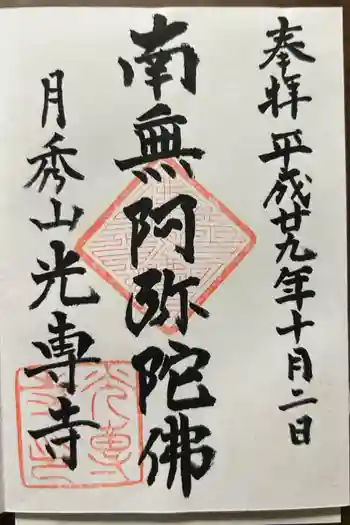 奉拝 平成廿九年十月二日
南無阿弥陀佛
月秀山光専寺